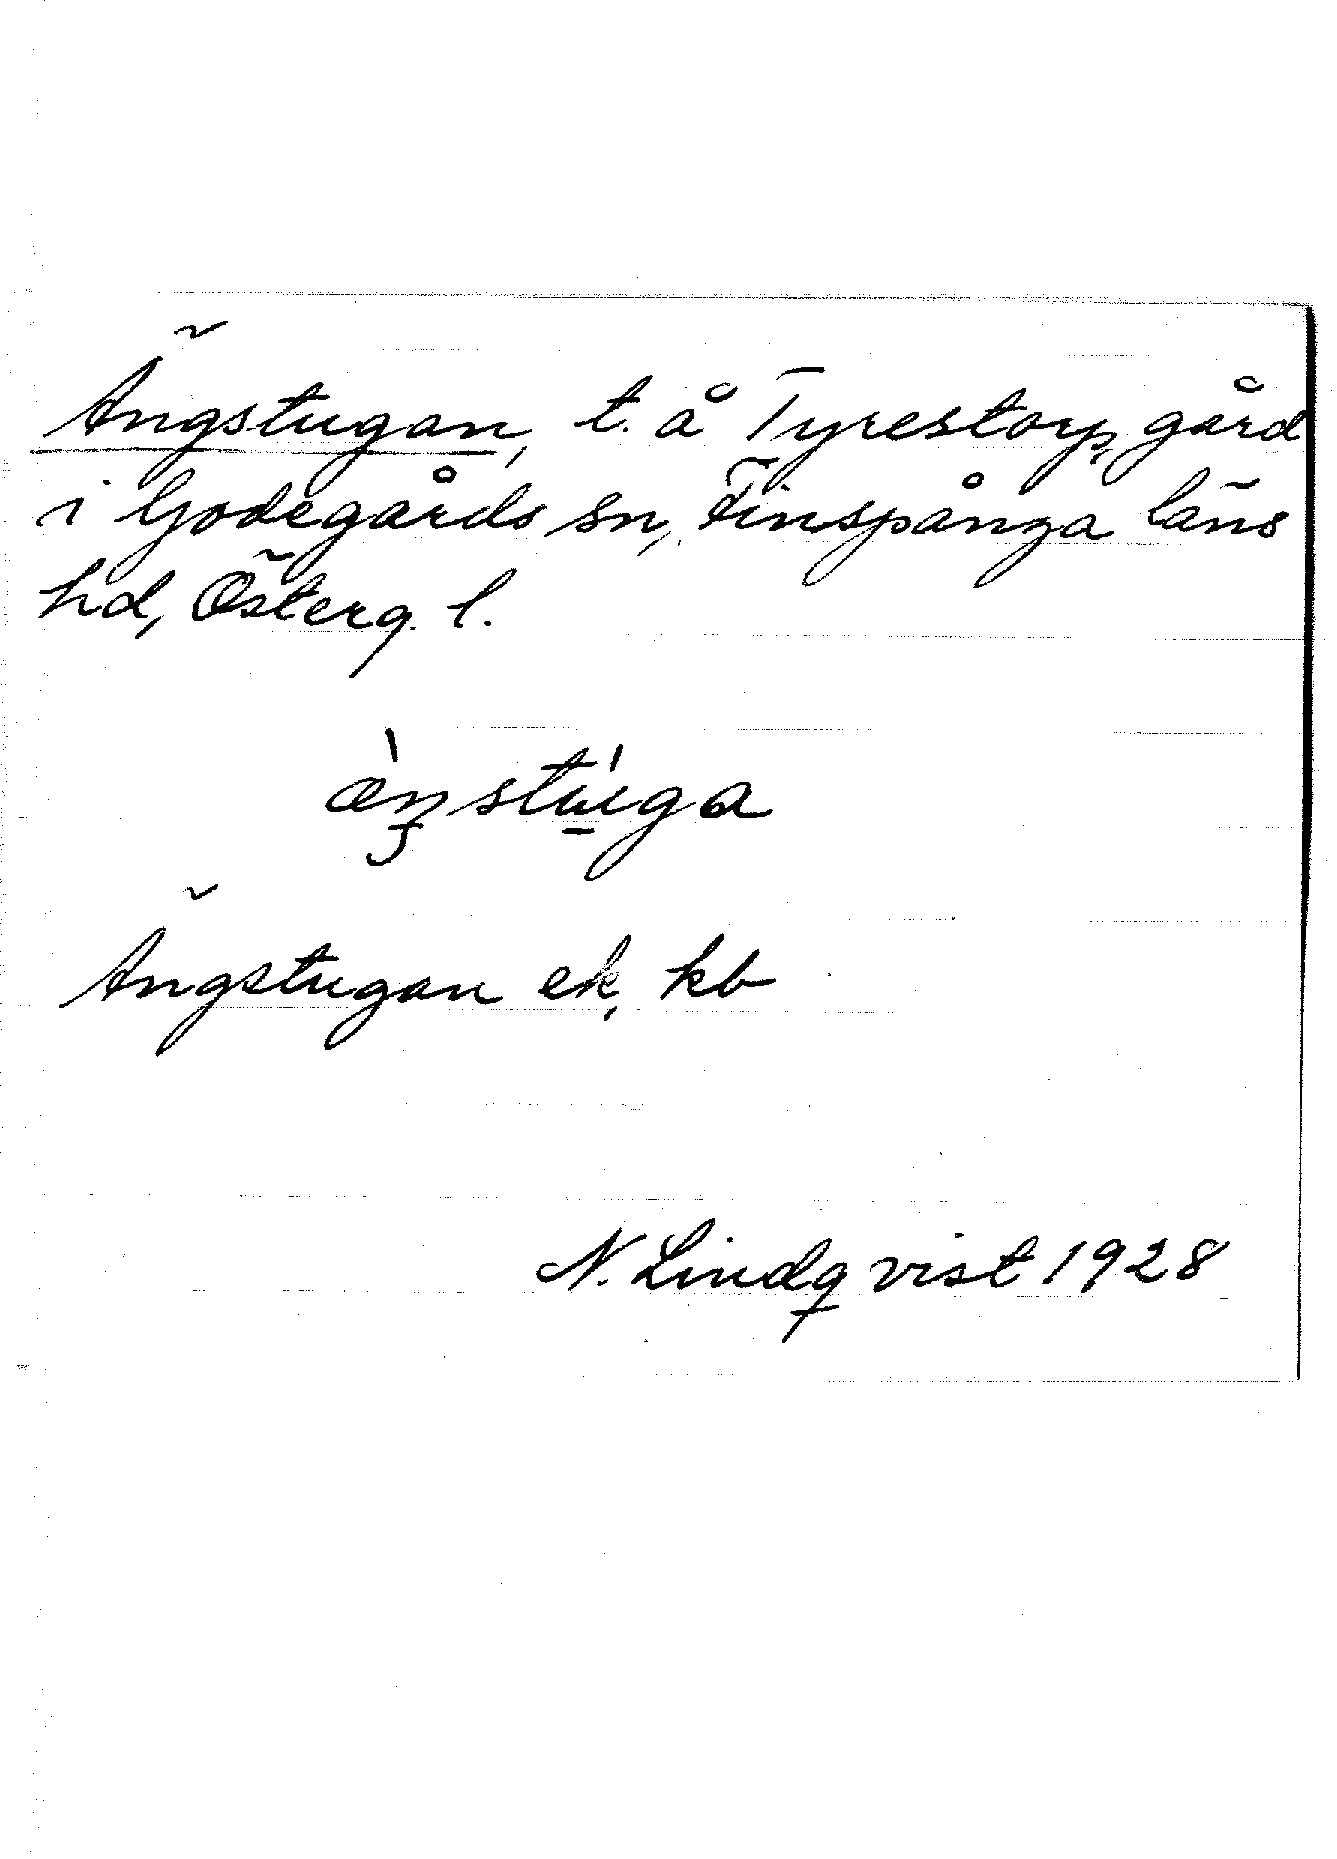 Ängstugan, t. å Tyrestorp, gård
i Godegårds sn, Finspånga läns
hd, Österg. l.
æ̀ŋstú̱ga
Ängstugan ek, kb
N. Lindqvist 1928